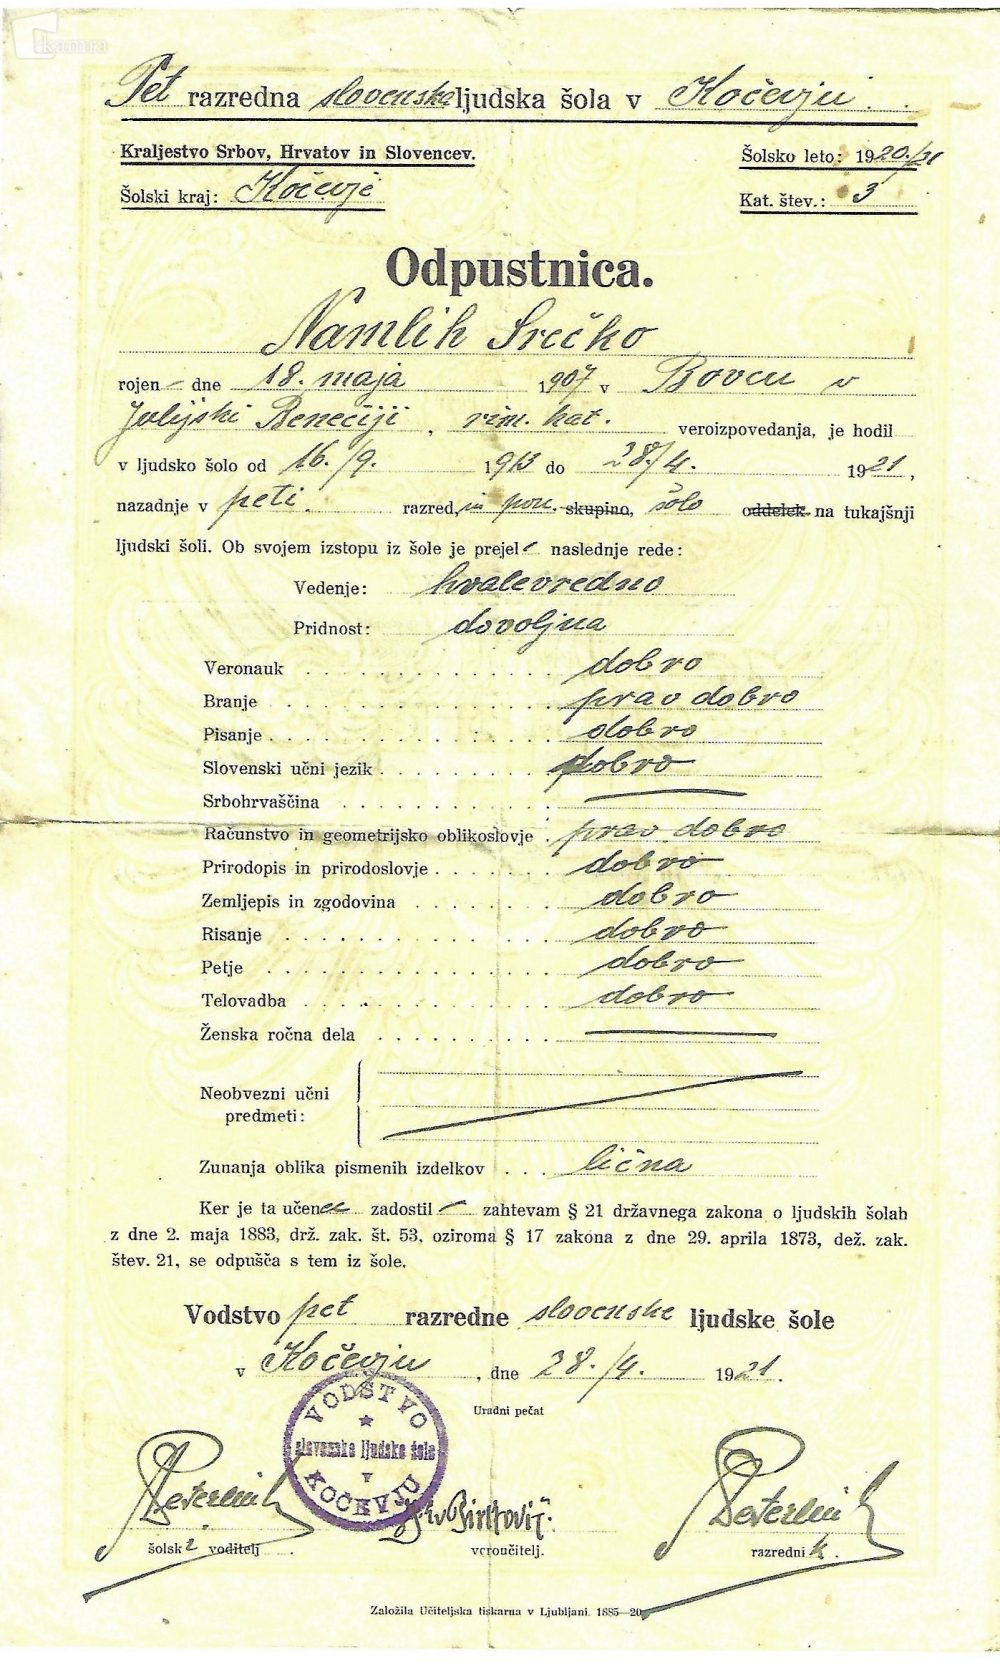 kamra
Pet razredna slovenska ljudska šola v Kočevju.
Kraljestvo Srbov, Hrvatov in Slovencev.
Šolsko leto: 1920./21
Šolski kraj: Kočevje
Kat. štev.: 3
Odpustnica.
Namlih Srečko
rojen – dne 18. maja 1907 v Bovcu v
Julijski Benečiji, rim. kat. veroizpovedanja, je hodil
v ljudsko šolo od 16./9. 1913 do 28./4. 1921,
nazadnje v peti. razred, in pon. skupino, šolo oddelek na tukajšnji
ljudski šoli. Ob svojem izstopu iz šole je prejel – naslednje rede:
Vedenje: hvalevredno
Pridnost: dovoljna
Veronauk dobro
Branje prav dobro
Pisanje dobro
Slovenski učni jezik dobro
Srbohrvaščina
Računstvo in geometrijsko oblikoslovje prav dobro
Prirodopis in prirodoslovje dobro
Zemljepis in zgodovina dobro
Risanje dobro
Petje dobro
Telovadba dobro
Ženska ročna dela
Neobvezni učni
predmeti:
Zunanja oblika pismenih izdelkov lična
Ker je ta učenec zadostil – zahtevam § 21 državnega zakona o ljudskih šolah
z dne 2. maja 1883, drž. zak. št. 53, oziroma § 17 zakona z dne 29. aprila 1873, dež. zak.
štev. 21, se odpušča s tem iz šole.
Vodstvo pet razredne slovenske ljudske šole
v Kočevju, dne 28./4. 1921.
Uradni pečat
VODSTVO
slovenske ljudske šole
v
KOČEVJU
Peterlin
Peterlin
šolski voditelj
veroučitelj.
razrednik.
Založila Učiteljska tiskarna v Ljubljani. 1885—20